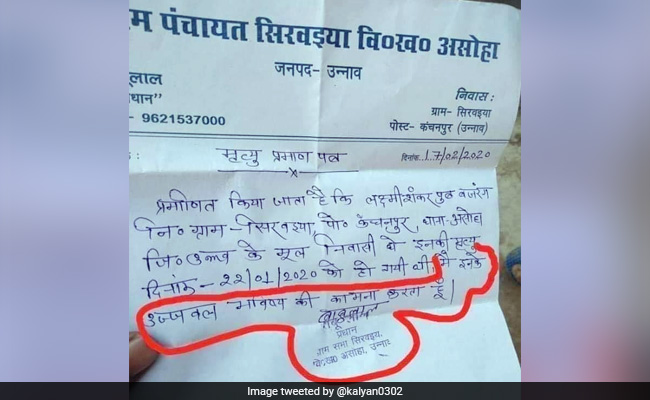 म पंचायत सिरवइया वि०ख० असोहा
जनपद- उन्नाव
ूलाल
धान"
- 9621537000
निवास :
ग्राम- सिरवइया
पोस्ट- कंचनपुर (उन्नाव)
मृत्यु प्रमाण पत्र
दिनांक 17/02/2020
प्रमाणित किया जाता है कि लक्ष्मीशंकर पुत्र बजरंग
नि० ग्राम-सिरवइया, पो० कंचनपुर, थाना-असोहा
जि० उन्नाव के मूल निवासी थे इनकी मृत्यु
दिनांक - 22/01/2020 को हो गयी थी मै इनके
उज्जवल भविष्य की कामना करता हूँ।
बाबूलाल
प्रधान
ग्राम सभा सिरवइया,
वि०ख० असोहा, उन्नाव
Image tweeted by @kalyan0302